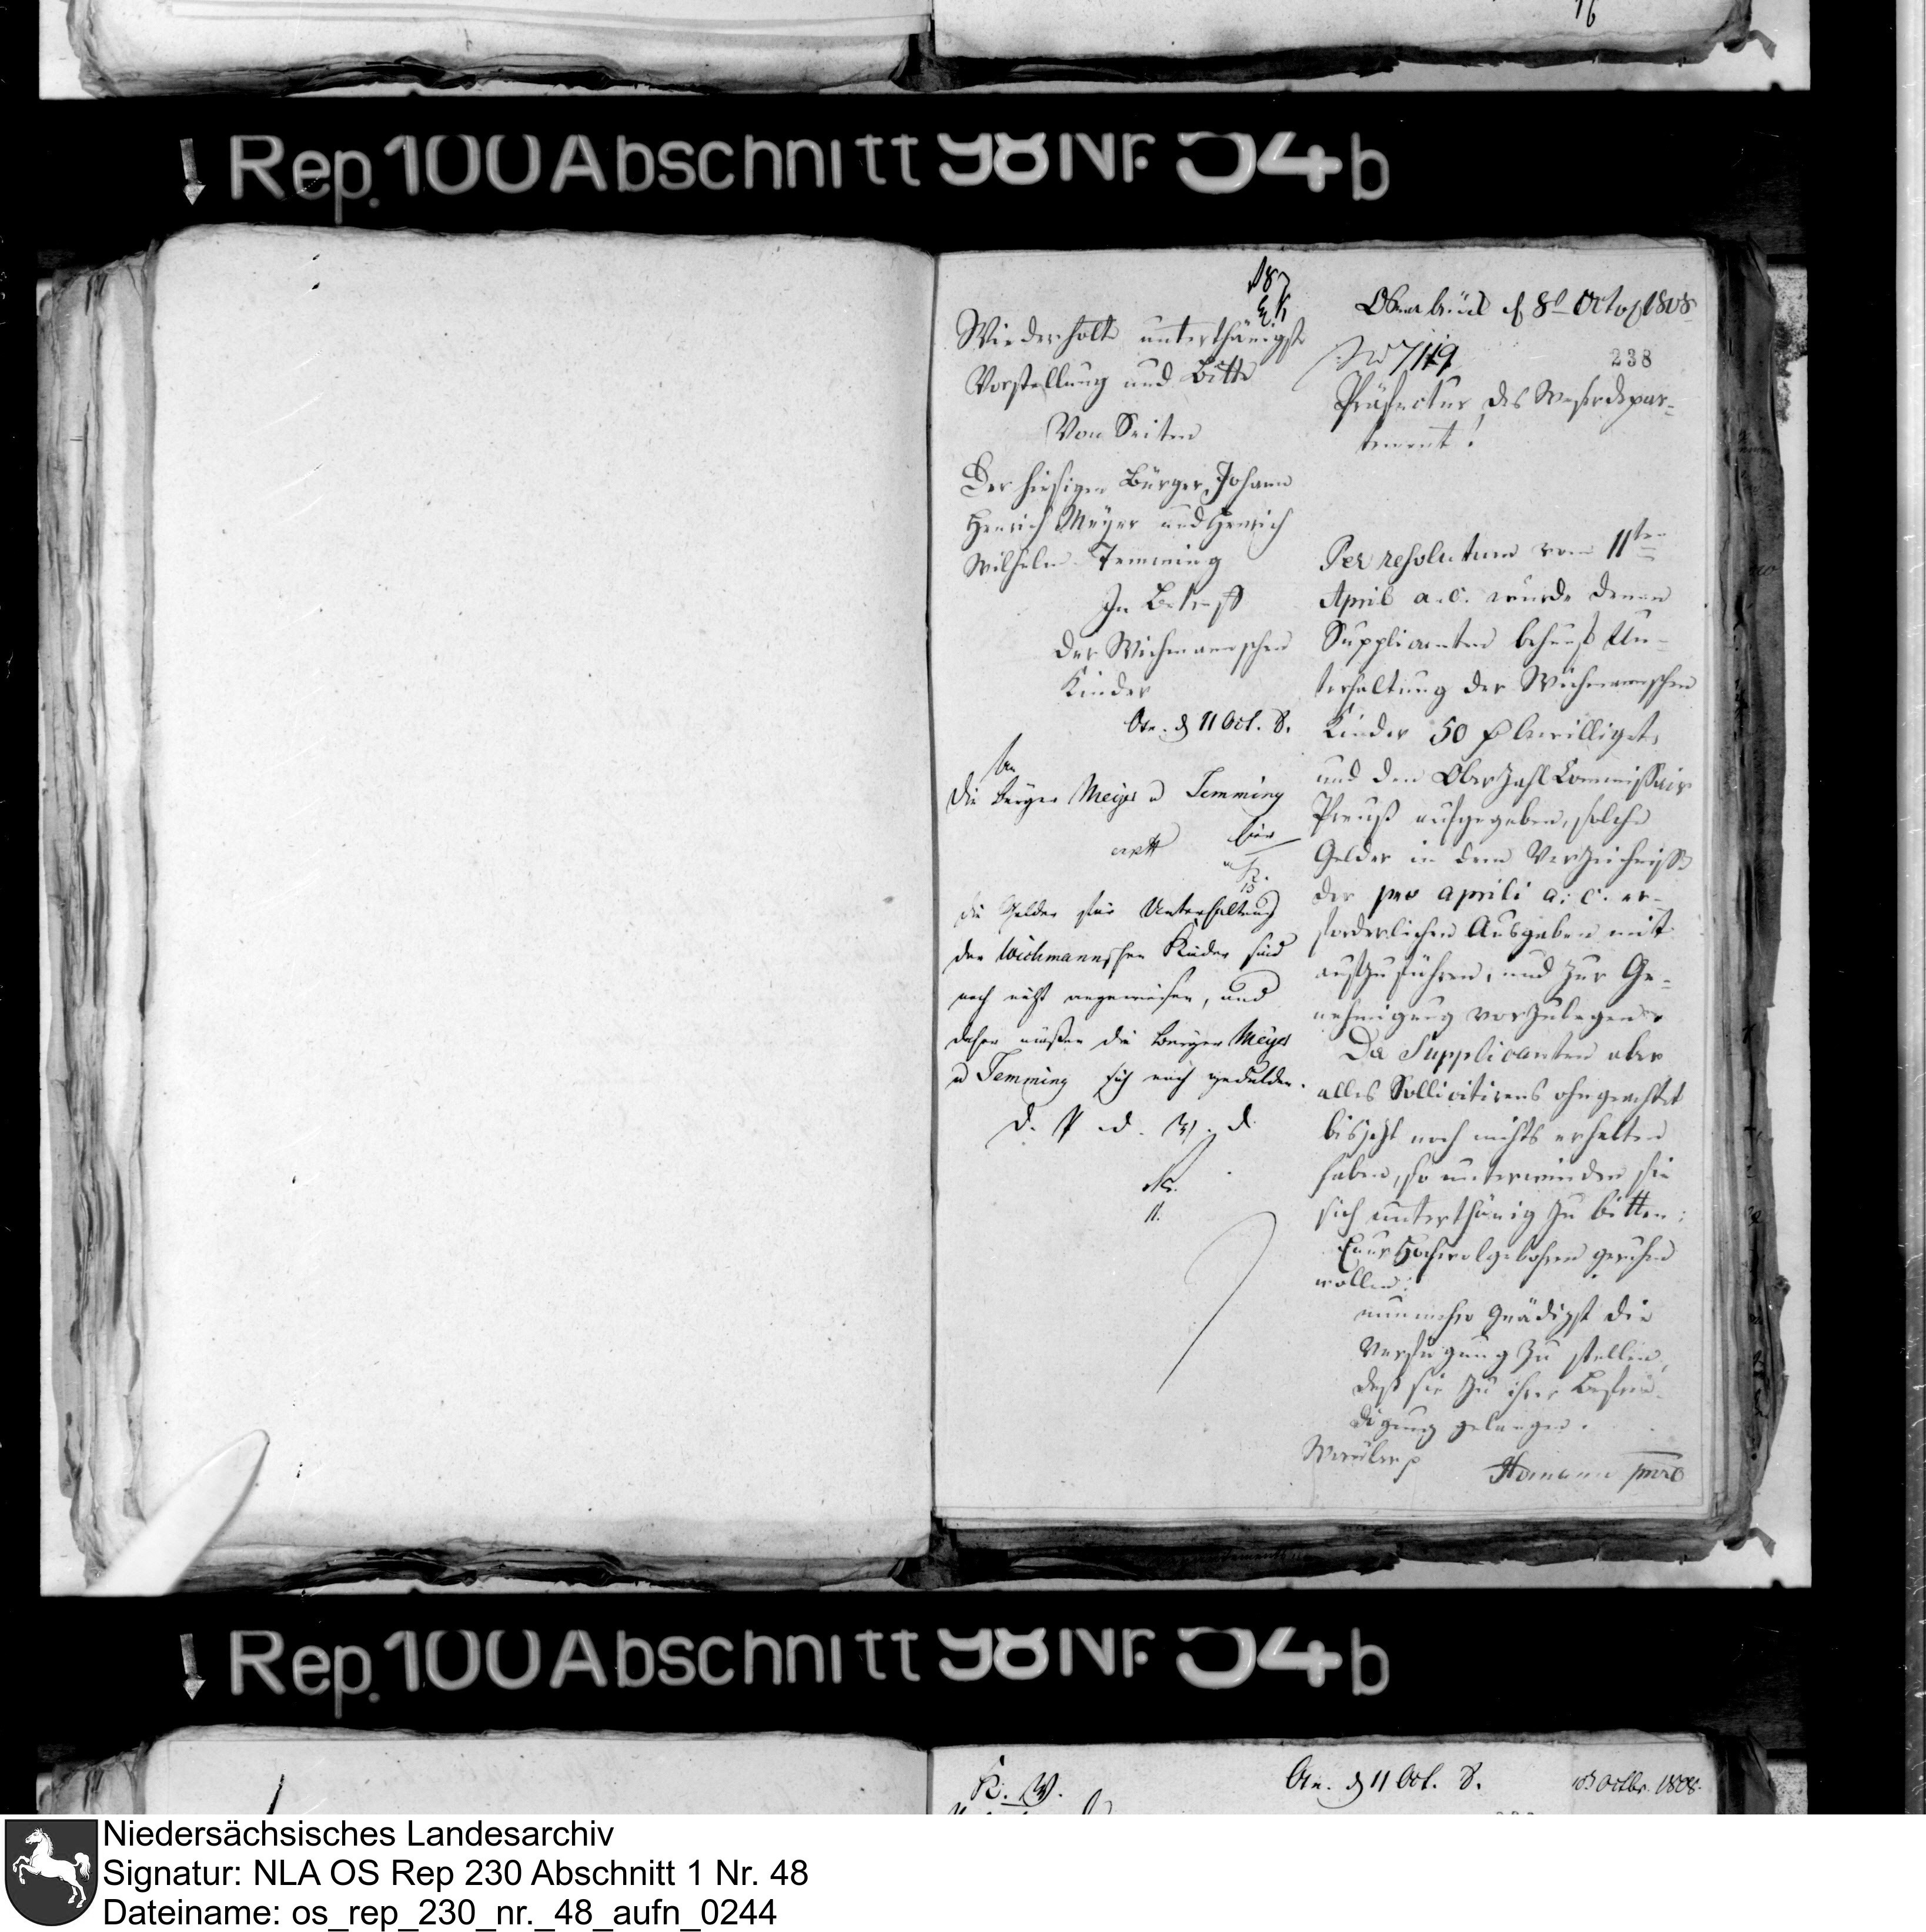 76
Rep. 100 Abschnitt 98 Nr. 54 b
187
Wiederholte unterthänigste
Vorstellung und Bitte
Von Seiten
Der hiesigen Bürger Johann
Henrich Meyer und Henrich
Wilhelm Temming
In Betreff
Der Wichmannschen
Kinder
Osn. d 11 Oct. 8.
An
die Bürger Meyer u Temming
hier
die Gelder für Unterhaltung
der Wichmannschen Kinder sind
noch nicht angewiesen, und
daher müßen die Bürger Meyer
u Temming sich noch gedulden.
d. P. d. W. d.
11.
Osnabrück d 8t Octob 1808
No 7119
238
Präfectur des Weserdepar-
tement!
Per resolutum vom 11ten
April a. c. wurde denen
Supplicanten behuf Un-
terhaltung der Wichmannschen
Kinder 50 bewilliget,
und dem Oberzahlcommissair
Preuß aufgegeben, solche
Gelder in dem Verzeichniße
der pro aprili a. c. er-
forderlichen Ausgaben mit
aufzuführen, und zur Ge-
nehmigung vorzulegen.
Da Supplicanten aber
alles Sollicitirens ohngeachtet
bisjetzt noch nichts erhalten
haben, so unterwinden sie
sich unterthänig zu bitten:
Euer Hochwolgebohren geruhen
wollen:
nunmehr Gnädigst die
Verfügung zu stellen,
daß sie zu ihrer Befrie-
digung gelangen.
Homann
K. W.
Osn. d 11 Oct. 8.
Octbr. 1808.
Niedersächsisches Landesarchiv
Signatur: NLA OS Rep 230 Abschnitt 1 Nr. 48
Dateiname: os_rep_230_nr._48_aufn_0244